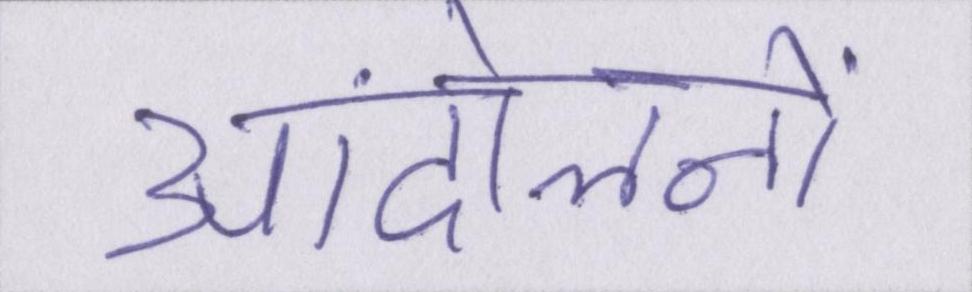 आंदोलनों